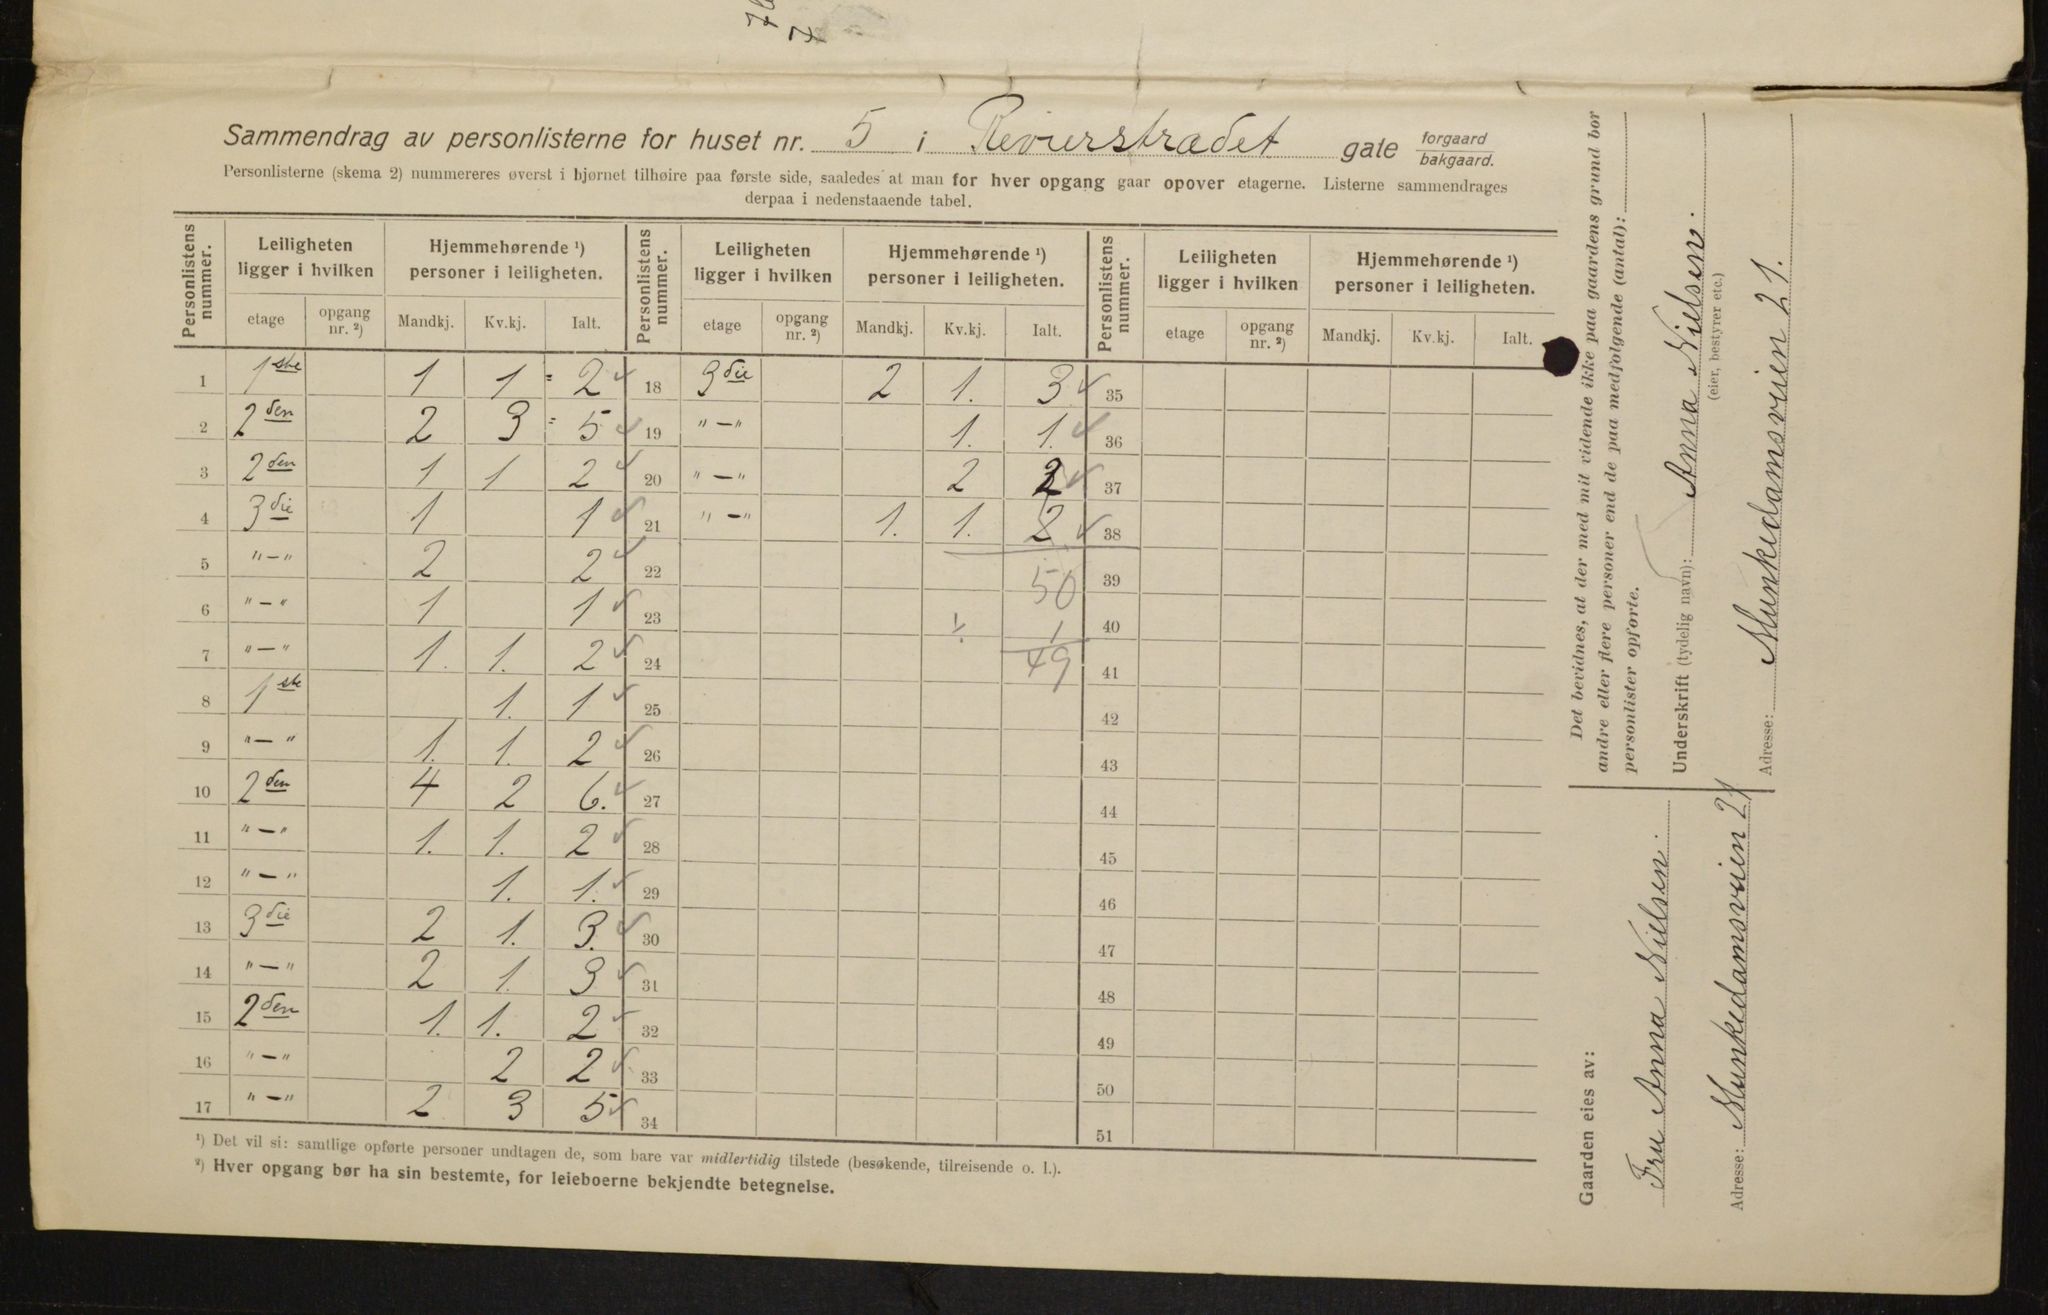 Sammendrag av personlisterne for huset nr. 5 i Revierstrædet gate forgaard / bakgaard.
Personlisterne (skema 2) nummereres øverst i hjørnet tilhøire paa første side, saaledes at man for hver opgang gaar opover etagerne. Listerne sammendrages
derpaa i nedenstaaende tabel.
Personlistens nummer. | Leiligheten ligger i hvilken | Hjemmehørende ¹) personer i leiligheten. | Personlistens nummer. | Leiligheten ligger i hvilken | Hjemmehørende ¹) personer i leiligheten. | Personlistens nummer. | Leiligheten ligger i hvilken | Hjemmehørende ¹) personer i leiligheten.
etage | opgang nr. ²) | Mandkj. | Kv.kj. | Ialt. | etage | opgang nr. ²) | Mandkj. | Kv.kj. | Ialt. | etage | opgang nr. ²) | Mandkj. | Kv.kj. | Ialt.
1 1ste 1 1 = 2 ✓ 18 3die 2 1. 3 ✓ 35
2 2den 2 3 = 5 ✓ 19 "—" 1. 1. ✓ 36
3 2den 1 1 2 ✓ 20 "—" 2 2 ✓ 37
4 3die 1 1 ✓ 21 "—" 1. 1. 2 ✓ 38
5 "—" 2 2 ✓ 22 50 39
6 "—" 1 1 ✓ 23 ÷ 1 40
7 "—" 1. 1. 2 ✓ 24 49 41
8 1ste 1. 1 ✓ 25 42
9 "—" 1. 1. 2 ✓ 26 43
10 2den 4 2 6. ✓ 27 44
11 "—" 1. 1. 2 ✓ 28 45
12 "—" 1. 1. ✓ 29 46
13 3die 2 1. 3. ✓ 30 47
14 "—" 2 1. 3 ✓ 31 48
15 2den 1. 1. 2 ✓ 32 49
16 "—" 2 2 ✓ 33 50
17 "—" 2 3 5 ✓ 34 51
¹) Det vil si: samtlige opførte personer undtagen de, som bare var midlertidig tilstede (besøkende, tilreisende o. l.).
²) Hver opgang bør ha sin bestemte, for leieboerne bekjendte betegnelse.
Det bevidnes, at der med mit vidende ikke paa gaardens grund bor
andre eller flere personer end de paa medfølgende (antal):
personlister opførte.
Underskrift (tydelig navn): Anna Nielsen.
(eier, bestyrer etc.)
Adresse: Munkedamsveien 21.
Gaarden eies av:
Fru Anna Nielsen.
Adresse: Munkedamsveien 21